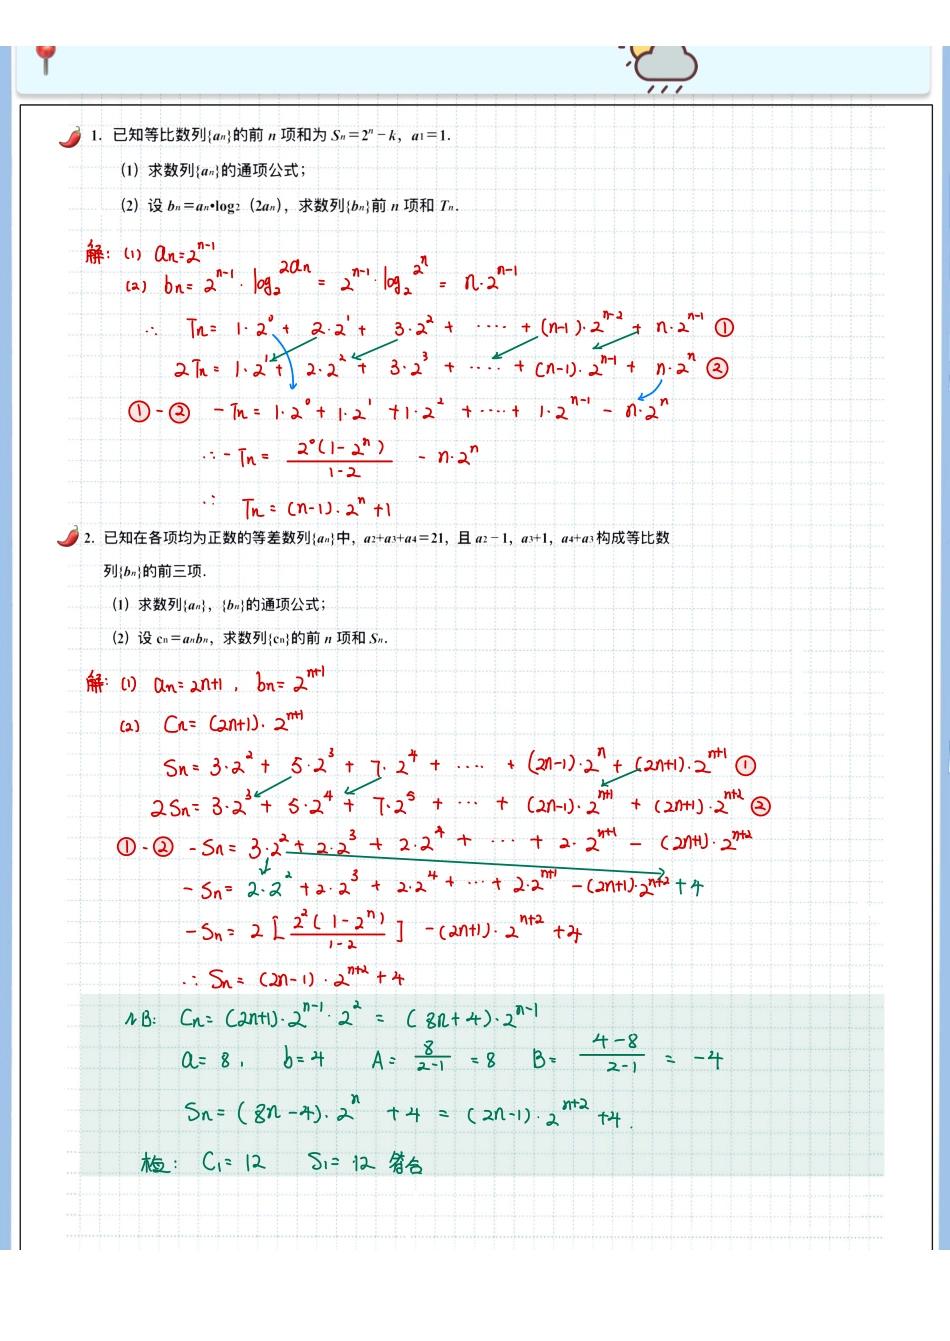 1. 已知等比数列{an}的前 n 项和为 Sn=2ⁿ-k, a1=1.
(1) 求数列{an}的通项公式;
(2) 设 bn=an•log2 (2an), 求数列{bn}前 n 项和 Tn.
解: (1) an=2^(n-1)
(2) bn= 2^(n-1)·log₂2an = 2^(n-1)·log₂2^n = n·2^(n-1)
∴ Tn= 1·2⁰+ 2·2¹+ 3·2²+ ···· +(n-1)·2^(n-2)+ n·2^(n-1) ①
2Tn= 1·2¹+ 2·2²+ 3·2³ + ···· + (n-1)·2^(n-1) + n·2^n ②
①-② -Tn= 1·2⁰+ 1·2¹ +1·2² +····+ 1·2^(n-1) - n·2^n
∴ -Tn= 2⁰(1-2^n)/(1-2) - n·2^n
∴ Tn= (n-1)·2^n+1
2. 已知在各项均为正数的等差数列{an}中, a2+a3+a4=21, 且 a2-1, a3+1, a4+a3 构成等比数
列{bn}的前三项.
(1) 求数列{an}, {bn}的通项公式;
(2) 设 cn=anbn, 求数列{cn}的前 n 项和 Sn.
解: (1) an=2n+1, bn= 2^(n+1)
(2) Cn= (2n+1)·2^(n+1)
Sn= 3·2²+ 5·2³+ 7·2⁴ + ···· + (2n-1)·2^n+ (2n+1)·2^(n+1) ①
2Sn= 3·2³+ 5·2⁴+ 7·2⁵ + ··· + (2n-1)·2^(n+1) + (2n+1)·2^(n+2) ②
①-② -Sn= 3·2²+2·2³ + 2·2⁴ + ··· + 2·2^(n+1) - (2n+1)·2^(n+2)
-Sn= 2·2² +2·2³+ 2·2⁴+ ···+ 2·2^(n+1) -(2n+1)·2^(n+2)+4
-Sn= 2[2²(1-2^n)/(1-2)] -(2n+1)·2^(n+2)+4
∴ Sn= (2n-1)·2^(n+2)+4
NB: Cn= (2n+1)·2^(n-1)·2² = (8n+4)·2^(n-1)
a=8, b=4 A= 8/(2-1) =8 B= (4-8)/(2-1) = -4
Sn=(8n-4)·2^n +4 = (2n-1)·2^(n+2)+4.
检: C₁=12 S₁=12 符合